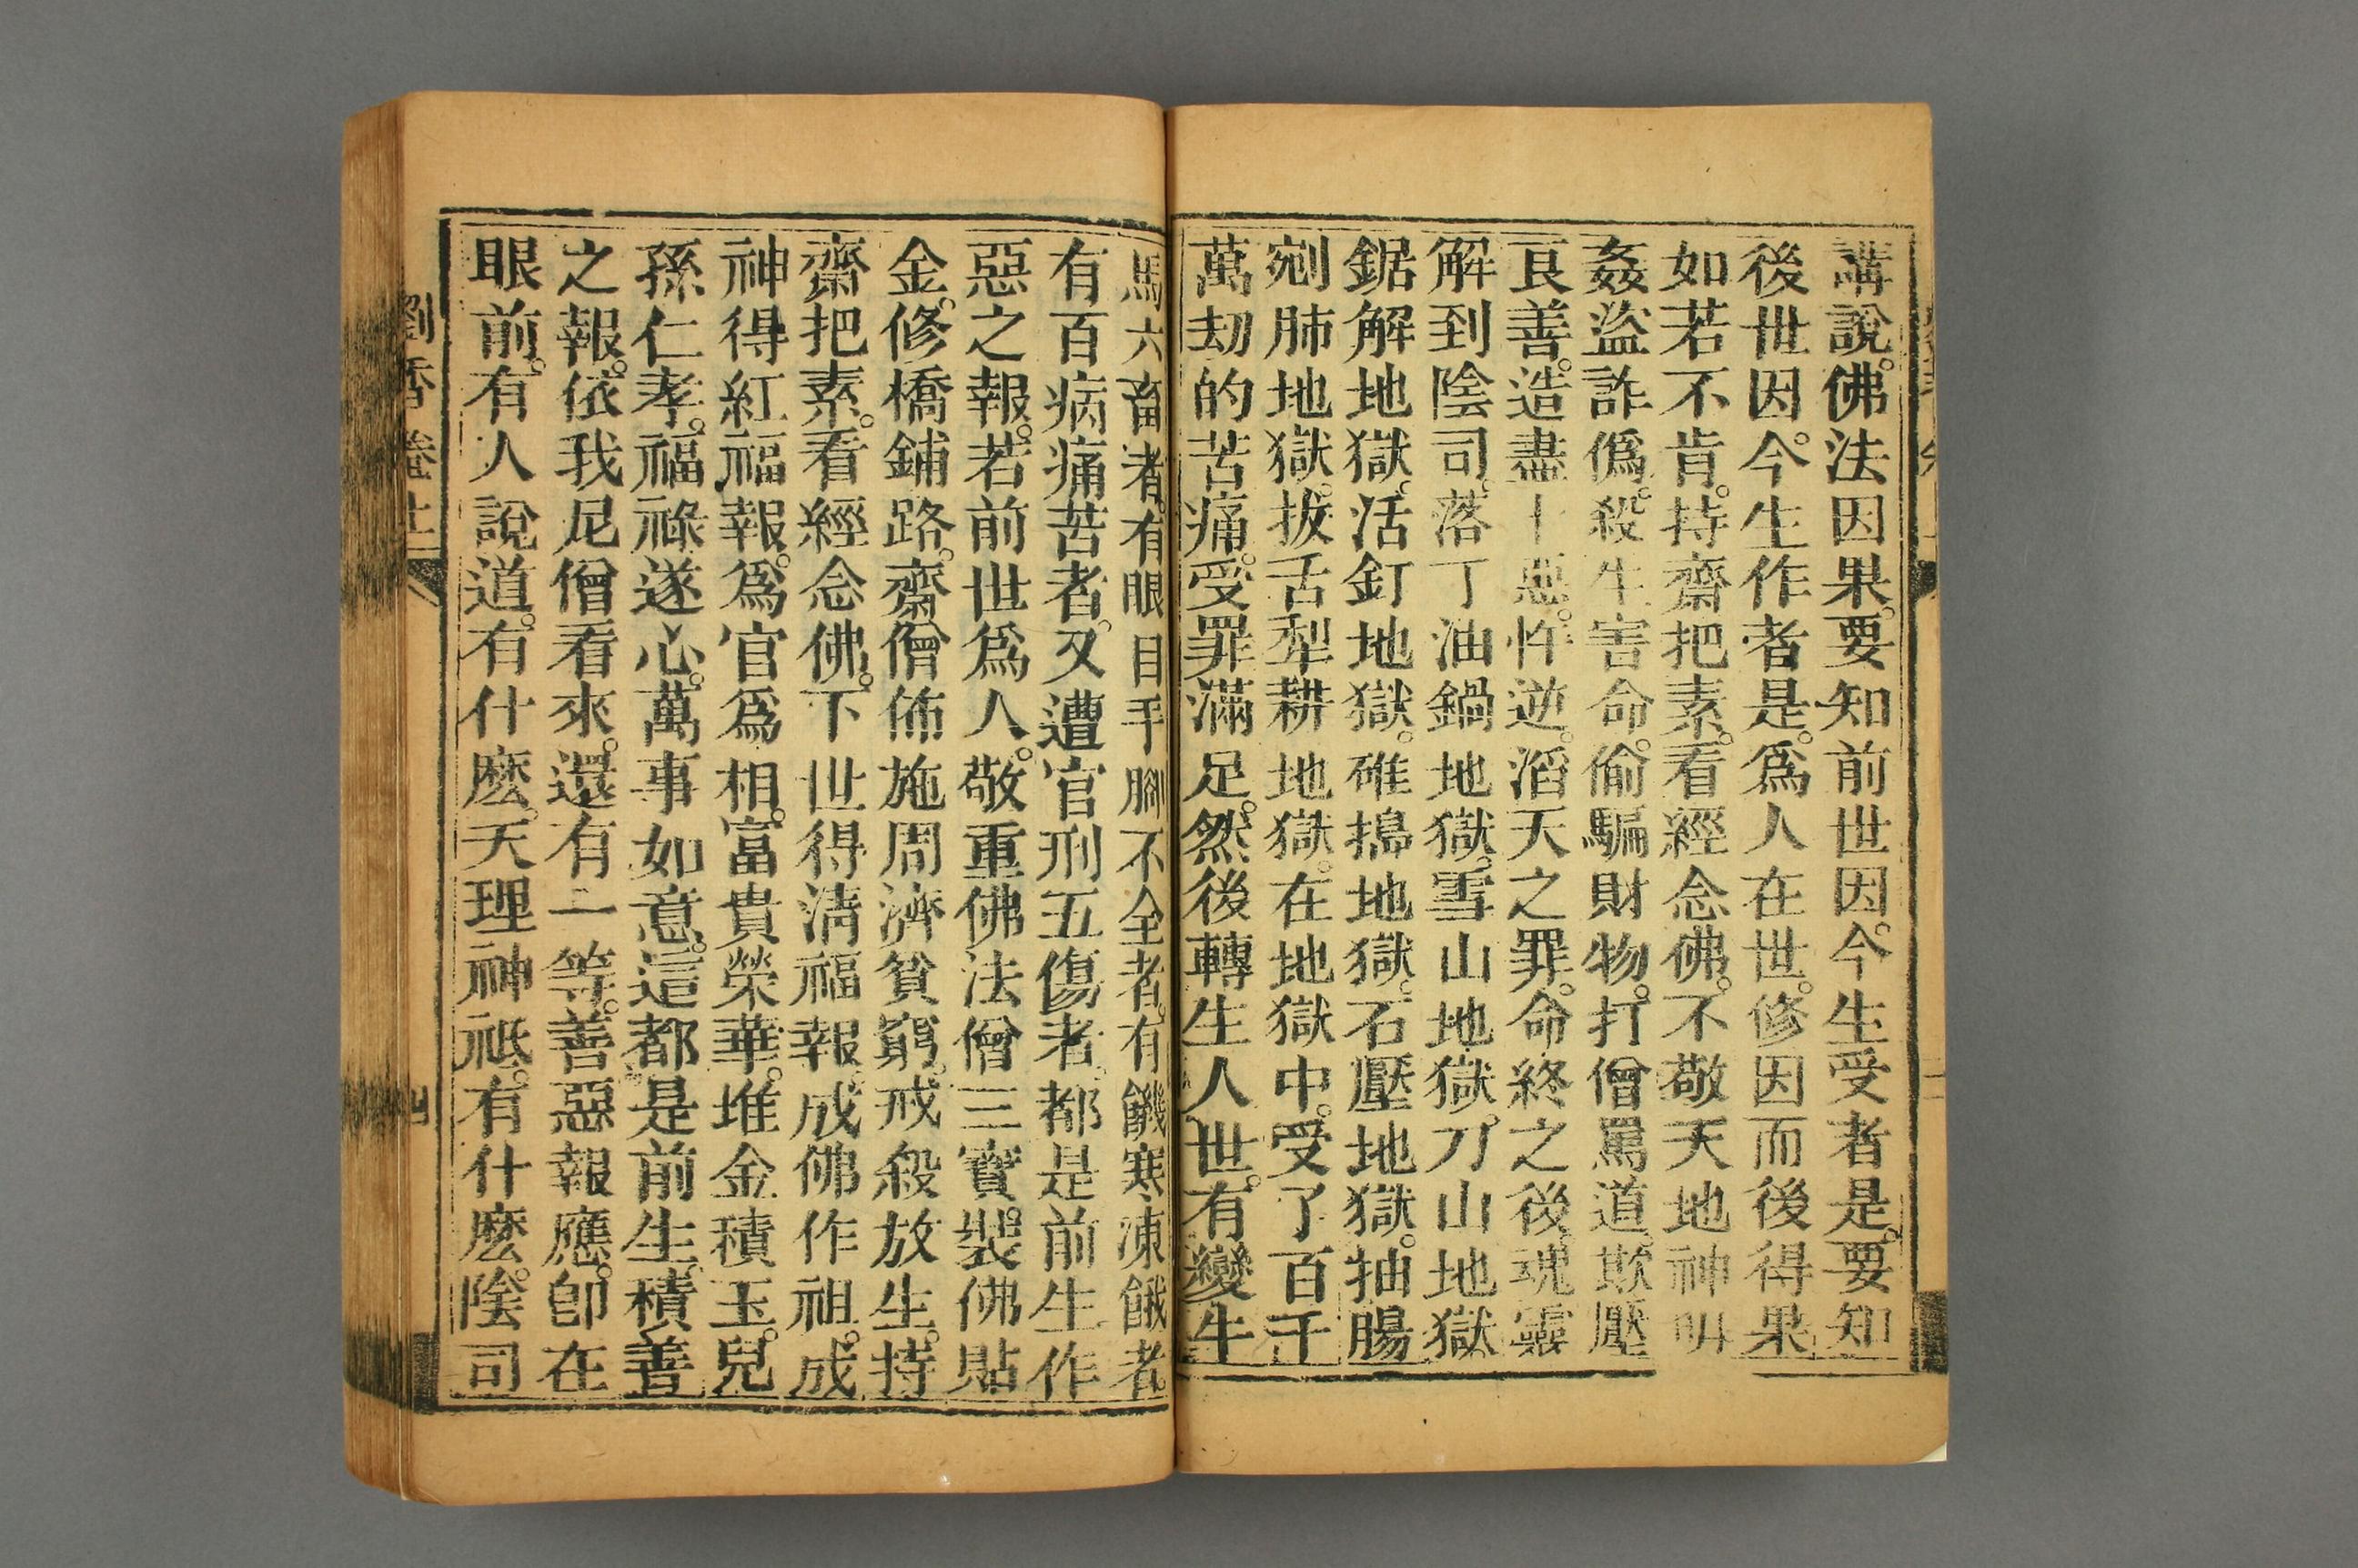 講說。佛法因果。要知前世因。今生受者是。要知
後世因。今生作者是。爲人在世。修因而後得果
如若不肯。持齋把素。看經念佛。不敬天地神明
姦盜詐僞。殺生害命。偷騙財物。打僧罵道。欺壓
良善。造盡十惡。忤逆。滔天之罪。命終之後。魂靈
解到陰司。落丁油鍋地獄。雪山地獄。刀山地獄
鋸解地獄。活釘地獄。碓搗地獄。石壓地獄。抽腸
剜肺地獄。拔舌犁耕地獄。在地獄中。受了百千
萬刼的苦痛。受罪滿足。然後轉生人世。有變牛
馬六畜者。有眼目手腳不全者。有饑寒凍餓者。
有百病痛苦者。又遭官刑五傷者。都是前生作
惡之報。若前世爲人。敬重佛法僧三寶。裝佛貼
金。修橋鋪路。齋僧佈施周濟貧窮。戒殺放生。持
齋把素。看經念佛。下世得淸福報。成佛作祖。成
神得紅福報。爲官爲相。富貴榮華。堆金積玉。兒
孫仁孝。福祿遂心。萬事如意。這都是前生積善
之報。依我尼僧看來。還有一等。善惡報應。卽在
眼前。有人說道。有什麽。天理神祗。有什麽。陰司
劉香 卷上 四